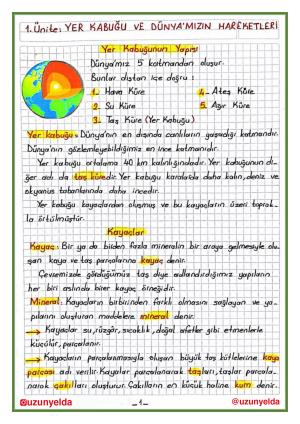 1. Ünite: YER KABUĞU VE DÜNYA'MIZIN HAREKETLERİ
Yer Kabuğunun Yapısı
Dünya'mız 5 katmandan oluşur.
Bunlar dıştan içe doğru :
1- Hava Küre
4- Ateş Küre
2- Su Küre
5- Ağır Küre
3- Taş Küre (Yer Kabuğu)
Yer kabuğu: Dünya'nın en dışında canlıların yaşadığı katmandır.
Dünya'nın gözlemleyebildiğimiz en ince katmanıdır.
Yer kabuğu ortalama 40 km kalınlığındadır. Yer kabuğunun di-
ğer adı da taş küredir. Yer kabuğu karalarda daha kalın, deniz ve
okyanus tabanlarında daha incedir.
Yer kabuğu kayaçlardan oluşmuş ve bu kayaçların üzeri toprak-
la örtülmüştür.
Kayaçlar
Kayaç: Bir ya da birden fazla mineralin bir araya gelmesiyle olu-
şan kaya ve taş parçalarına kayaç denir.
Çevremizde gördüğümüz taş diye adlandırdığımız yapıların
her biri aslında birer kayaç örneğidir.
Mineral: Kayaçların birbirinden farklı olmasını sağlayan ve ya-
pılarını oluşturan maddelere mineral denir.
→ Kayaçlar su, rüzgâr, sıcaklık, doğal afetler gibi etmenlerle
küçülür, parçalanır.
→ Kayaçların parçalanmasıyla oluşan büyük taş kütlelerine kaya
parçası adı verilir. Kayalar parçalanarak taşları, taşlar parçala-
narak çakılları oluşturur. Çakılların en küçük haline kum denir.
@uzunyelda
-1-
@uzunyelda